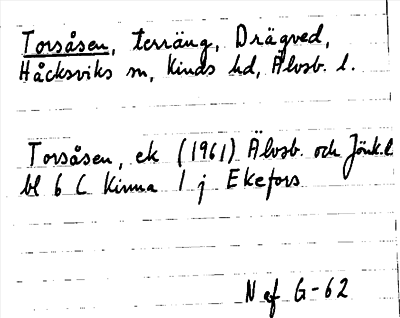 Torsåsen, terräng, Drägved,
Håcksviks sn, Kinds hd, Älvsb. l.
Torsåsen, ek (1961) Älvsb. och Jönk. l
bl 6 C Kinna 1 j Ekefors
N ef G-62